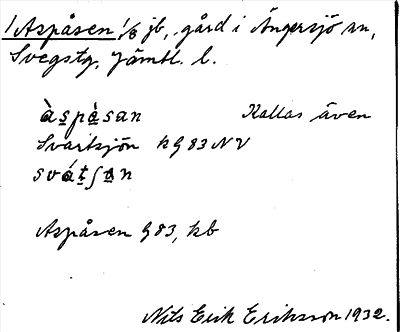 /Aspåsen/ 1/8 jb, gård i Ängersjö sn,
Svegstg, Jämtl. l.
àspàsan Kallas även
Svartsjön kG 83 NV
svátʃan
Aspåsen G 83, kb
Nils Erik Eriksson 1932.